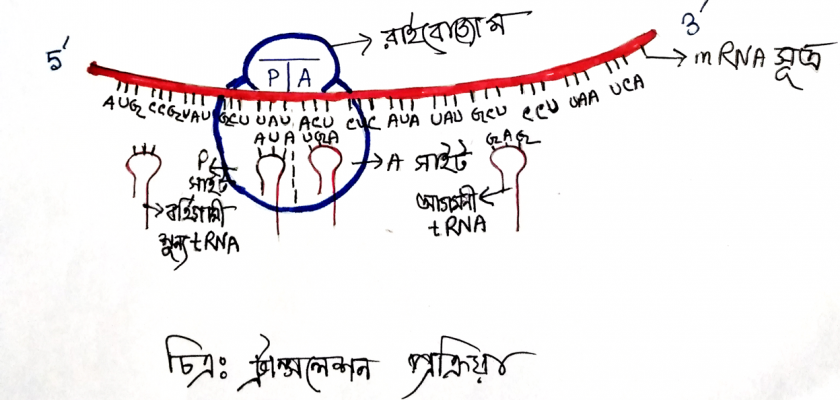 5′
3′
রাইবোজোম
P A
mRNA সূত্র
AUG CCG UAU GCU UAU ACU CUC AUA UAU GCU CCU UAA UCA
AUA UGA
GAG
P
সাইট
A সাইট
বর্হিগামী
শূন্য tRNA
আগামী
tRNA
চিত্র: ট্রান্সলেশন প্রক্রিয়া